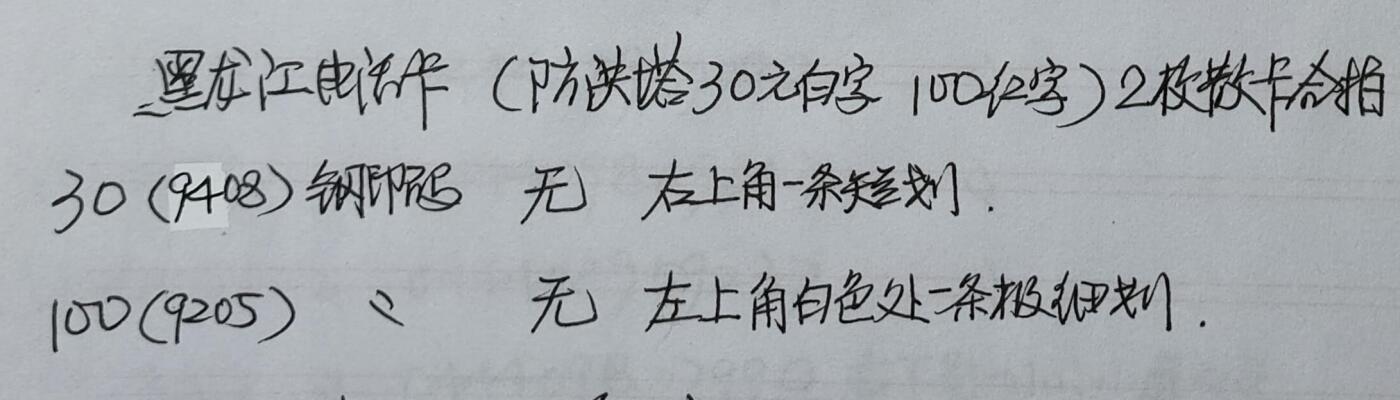 黑龙江电话卡（防洪塔30元白字 100红字）2枚散卡合拍
30（9408）钢印码 无 右上角一条短划.
100（9205） 〃 无 左上角白色处一条极细划.